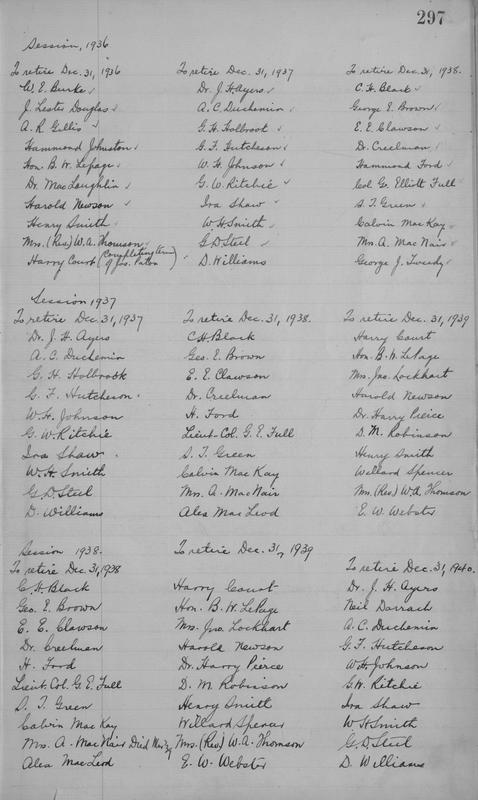 297
Session, 1936
To retire Dec. 31, 1936
W. E. Burke
J. Lester Douglas
A. R. Gillis
Hammond Johnston
Hon. B. W. Lepage
Dr. MacLaughlin
Harold Newson
Henry Smith
Mrs. (Rev) W. A. Thomson
Harry Court (Completing term of Jas. Paton)
To retire Dec. 31, 1937
Dr. J. H Ayers
A. C. Duchemin
G. H Holbrook
G. F. Hutcheson
W. H. Johnson
G. W. Ritchie
Ira Shaw
W. H. Smith
G. D Steel
D. Williams
To retire Dec. 31, 1938.
C. H. Black
George E. Brown
E. E. Clawson
D. Creelman
Hammond Ford
Col. G. Elliott Full
S. T. Green
Calvin MacKay
Mrs. A. MacNair
George J. Tweedy
Session 1937
To retire Dec. 31, 1937
Dr. J. H. Ayers
A. C. Duchemin
G. H. Holbrook
G. F. Hutcheson.
W. H. Johnson
G. W. Ritchie
Ira Shaw
W. H. Smith
G. D Steel
D. Williams
To retire Dec. 31, 1938.
C. H. Black
Geo. E. Brown
E. E. Clawson
Dr. Creelman
H. Ford
Lieut-Col. G. E. Full
S. T. Green
Calvin MacKay
Mrs. A. MacNair
Alex MacLeod
To retire Dec. 31, 1939
Harry Court
Hon. B. W. LePage
Mrs. Jas. Lockhart
Harold Newson
Dr. Harry Peirce
D. M. Robinson
Henry Smith
Willard Spencer
Mrs. (Rev) W. A. Thomson
E. W. Webster
Session 1938.
To retire Dec. 31, 1938
C. H. Black
Geo. E. Brown
E. E. Clawson
Dr. Creelman
H. Ford
Lieut. Col. G. E. Full
S. T. Green
Calvin MacKay
Mrs. A. MacNair Died
Alex MacLeod
To retire Dec. 31, 1939
Harry Court
Hon. B. W. LePage
Mrs. Jno. Lockhart
Harold Newson
Dr. Harry Pierce
D. M. Robinson
Henry Smith
Willard Spencer
Mrs. (Rev) W. A. Thomson
E. W. Webster
To retire Dec. 31, 1940.
Dr. J. H. Ayers
Neil Darrach
A. C. Duchemin
G. F. Hutcheson
W. H. Johnson
G. W. Ritchie
Ira Shaw
W. H. Smith
G. D Steel
D. Williams